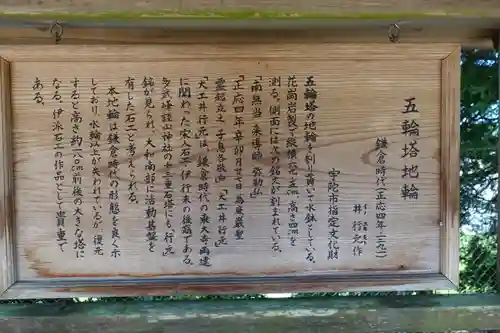 五輪塔地輪
鎌倉時代(正応四年・一二九一)
井行元作
宇陀市指定文化財
五輪塔の地輪を刳り貫いて水鉢としている。
花崗岩製で縦横六七・五㎝、高さ四四㎝を
測る。側面には次の銘文が刻まれている。
「南無当来導師弥勒仏」
「正応四年辛卯月廿八日為慶厳聖
霊起立之 子息各敬白」「大工井行元」
「大工井行元」は、鎌倉時代の東大寺再建
に関わった宋人石工伊行末の後裔である。
多武峰談山神社の十三重石塔にも「行元」
銘が見られ、大和南部に活動基盤を
有した石工と考えられる。
本地輪は鎌倉時代の形態を良く示
しており、水輪以上が失われているが、復元
すると高さ約一八〇㎝前後の大きな塔に
なる。伊派石工の作品として貴重で
ある。